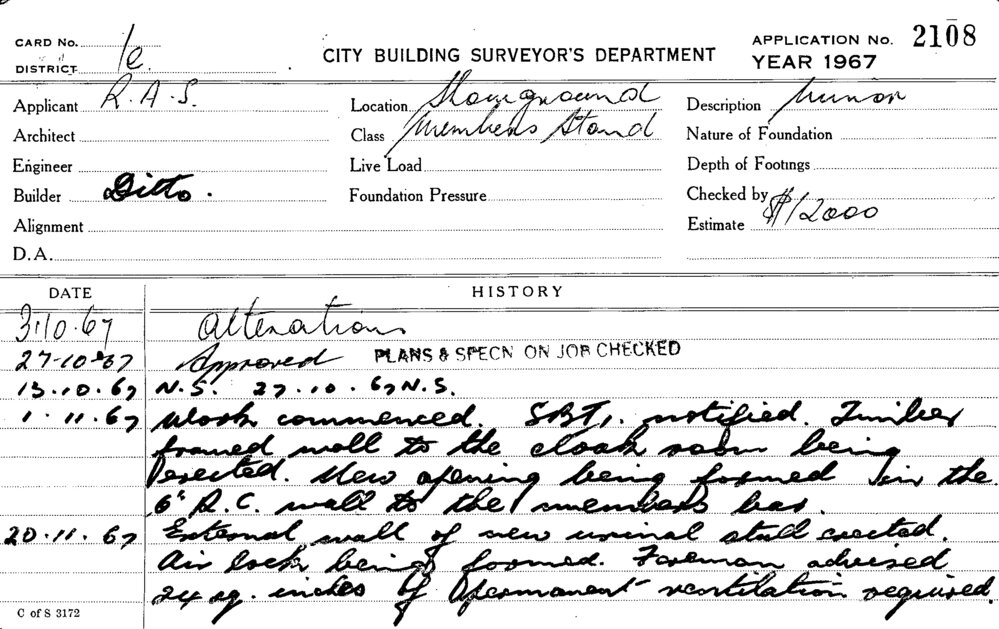 CARD No. 1e
DISTRICT
CITY BUILDING SURVEYOR'S DEPARTMENT
APPLICATION No. 2108
YEAR 1967
Applicant R.A.S.
Location Showground
Description Minor
Architect
Class Members Stand
Nature of Foundation
Engineer
Live Load
Depth of Footings
Builder Ditto.
Foundation Pressure
Checked by
Alignment
Estimate $12000
D.A.
DATE
HISTORY
3.10.67 Alterations
27-10-67 Approved PLANS & SPECN ON JOB CHECKED
13.10.67 N.S. 27.10.67 N.S.
1.11.67 Work commenced. notified. Timber
framed wall to the cloak room being
erected. New opening being formed in the
6" R.C. wall to the members bar.
20.11.67 External wall of new urinal stall erected.
Air lock being formed. Foreman advised
24 sq. inches of permanent ventilation required.
C of S 3172